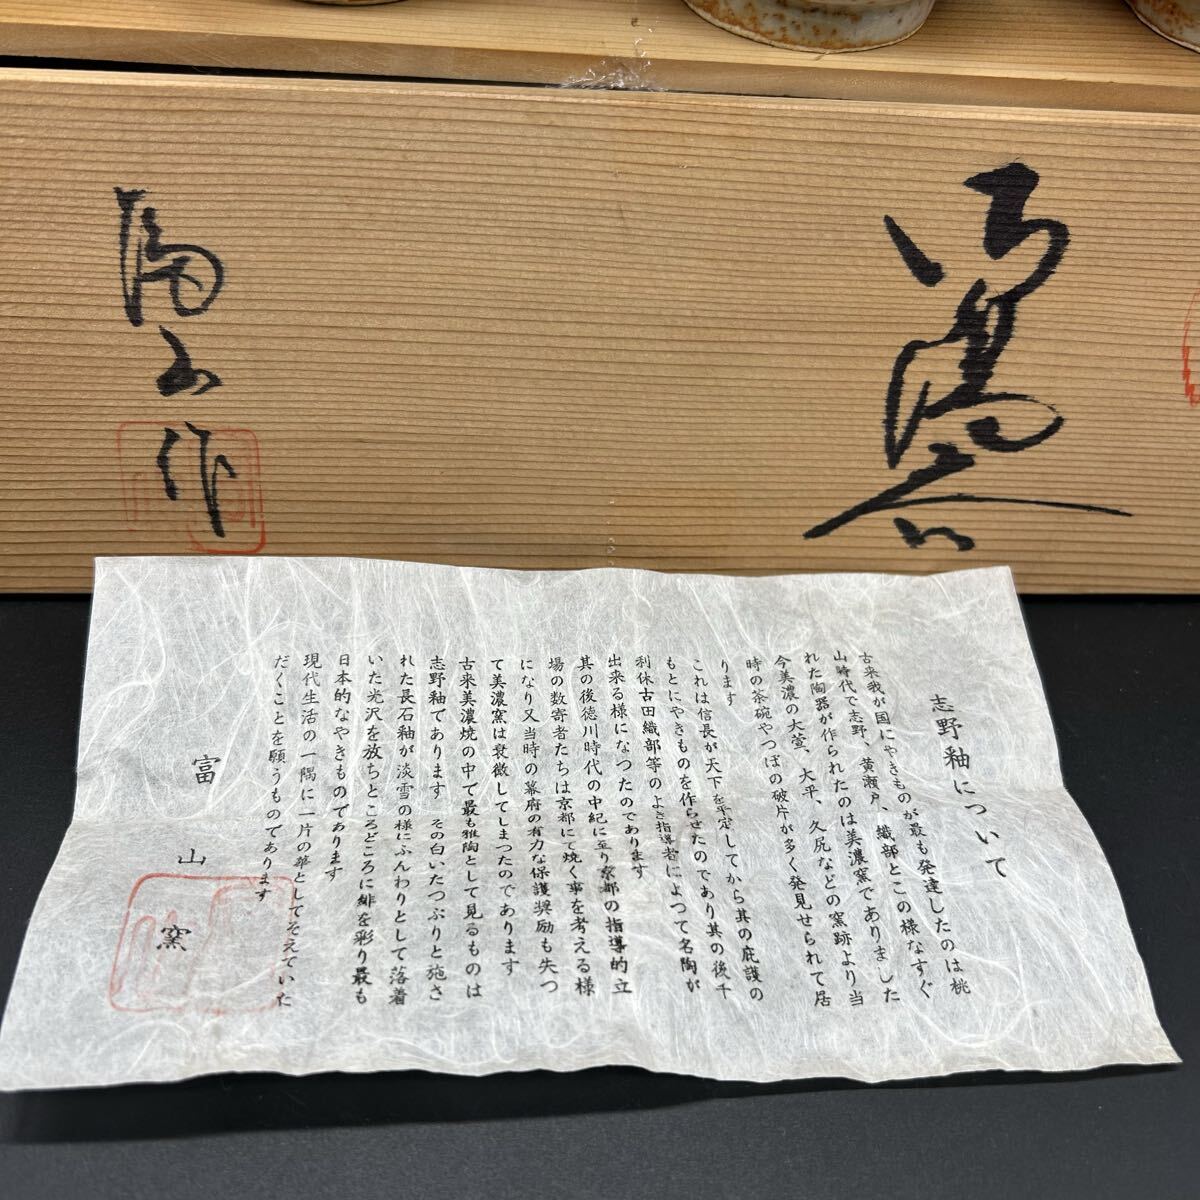 志野釉について
古来我が国にやきものが最も発達したのは桃
山時代で志野、黄瀬戸、織部とこの様なすぐ
れた陶器が作られたのは美濃窯でありました
今美濃の大萱、大平、久尻などの窯跡より当
時の茶碗やつぼの破片が多く発見せられて居
ります
これは信長が天下を平定してから其の庇護の
もとにやきものを作らせたのであり其の後千
利休古田織部等のよき指導者によつて名陶が
出来る様になつたのであります
其の後徳川時代の中紀に至り京都の指導的立
場の数寄者たちは京都にて焼く事を考える様
になり又当時の幕府の有力な保護奨励も失つ
て美濃窯は衰微してしまつたのであります
古来美濃焼の中で最も雅陶として見るものは
志野釉であります その白いたつぷりと施さ
れた長石釉が淡雪の様にふんわりとして落着
いた光沢を放ちところどころに緋を彩り最も
日本的なやきものであります
現代生活の一隅に一片の華としてそえていた
だくことを願うものであります
富山窯
作